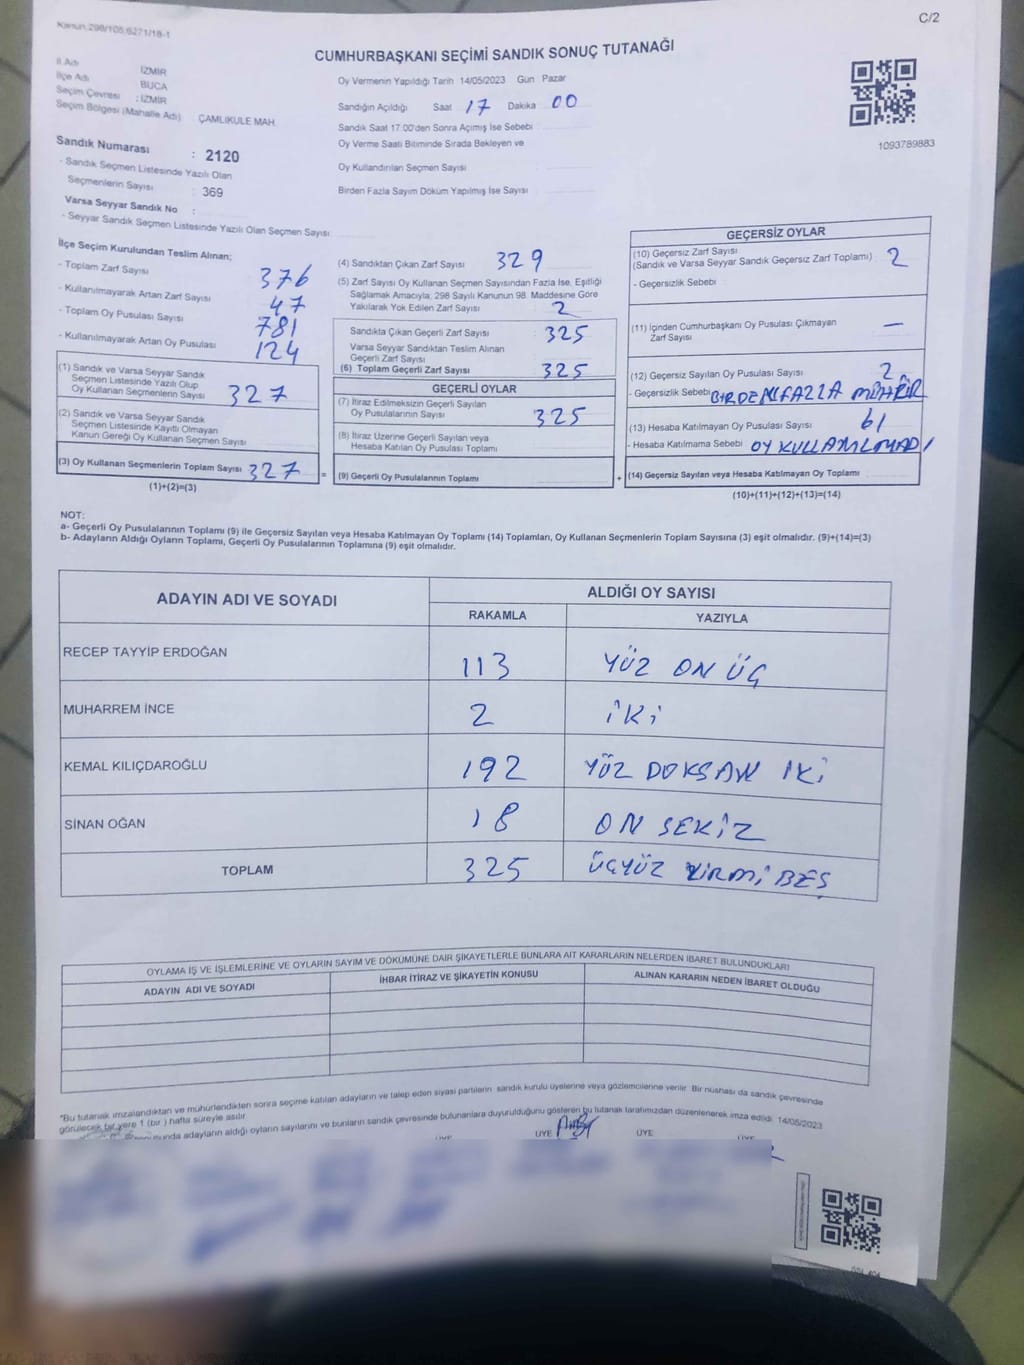 Kanun:298/105,6271/18-1
C/2
CUMHURBAŞKANI SEÇİMİ SANDIK SONUÇ TUTANAĞI
İl Adı İZMİR
İlçe Adı BUCA
Seçim Çevresi : İZMİR
Seçim Bölgesi (Mahalle Adı) ÇAMLIKULE MAH.
Sandık Numarası : 2120
- Sandık Seçmen Listesinde Yazılı Olan
Seçmenlerin Sayısı : 369
Varsa Seyyar Sandık No :
- Seyyar Sandık Seçmen Listesinde Yazılı Olan Seçmen Sayısı
Oy Vermenin Yapıldığı Tarih 14/05/2023 Gün Pazar
Sandığın Açıldığı Saat 17 Dakika 00
Sandık Saat 17:00'den Sonra Açımış İse Sebebi
Oy Verme Saati Bitiminde Sırada Bekleyen ve
Oy Kullandırılan Seçmen Sayısı
Birden Fazla Sayım Döküm Yapılmış İse Sayısı
1093789883
İlçe Seçim Kurulundan Teslim Alınan;
- Toplam Zarf Sayısı 376
- Kullanılmayarak Artan Zarf Sayısı 47
- Toplam Oy Pusulası Sayısı 781
- Kullanılmayarak Artan Oy Pusulası 124
(1) Sandık ve Varsa Seyyar Sandık
Seçmen Listesinde Yazılı Olup
Oy Kullanan Seçmenlerin Sayısı 327
(2) Sandık ve Varsa Seyyar Sandık
Seçmen Listesinde Kayıtlı Olmayan
Kanun Gereği Oy Kullanan Seçmen Sayısı
(3) Oy Kullanan Seçmenlerin Toplam Sayısı 327 =
(1)+(2)=(3)
(4) Sandıktan Çıkan Zarf Sayısı 329
(5) Zarf Sayısı Oy Kullanan Seçmen Sayısından Fazla İse, Eşitliği
Sağlamak Amacıyla, 298 Sayılı Kanunun 98. Maddesine Göre
Yakılarak Yok Edilen Zarf Sayısı 2
Sandıkta Çıkan Geçerli Zarf Sayısı 325
Varsa Seyyar Sandıktan Teslim Alınan
Geçerli Zarf Sayısı
(6) Toplam Geçerli Zarf Sayısı 325
GEÇERLİ OYLAR
(7) İtiraz Edilmeksizin Geçerli Sayılan
Oy Pusulalarının Sayısı 325
(8) İtiraz Üzerine Geçerli Sayılan veya
Hesaba Katılan Oy Pusulası Toplamı
(9) Geçerli Oy Pusulalarının Toplamı +
GEÇERSİZ OYLAR
(10) Geçersiz Zarf Sayısı
(Sandık ve Varsa Seyyar Sandık Geçersiz Zarf Toplamı) 2
- Geçersizlik Sebebi
(11) İçinden Cumhurbaşkanı Oy Pusulası Çıkmayan
Zarf Sayısı —
(12) Geçersiz Sayılan Oy Pusulası Sayısı 2
- Geçersizlik Sebebi BİRDENFAZLA MÜHÜR
(13) Hesaba Katılmayan Oy Pusulası Sayısı 61
- Hesaba Katılmama Sebebi OY KULLANILMADI
(14) Geçersiz Sayılan veya Hesaba Katılmayan Oy Toplamı
(10)+(11)+(12)+(13)=(14)
NOT:
a- Geçerli Oy Pusulalarının Toplamı (9) ile Geçersiz Sayılan veya Hesaba Katılmayan Oy Toplamı (14) Toplamları, Oy Kullanan Seçmenlerin Toplam Sayısına (3) eşit olmalıdır. (9)+(14)=(3)
b- Adayların Aldığı Oyların Toplamı, Geçerli Oy Pusulalarının Toplamına (9) eşit olmalıdır.
ADAYIN ADI VE SOYADI ALDIĞI OY SAYISI
RAKAMLA YAZIYLA
RECEP TAYYİP ERDOĞAN 113 YÜZ ON ÜÇ
MUHARREM İNCE 2 İKİ
KEMAL KILIÇDAROĞLU 192 YÜZ DOKSAN İKİ
SİNAN OĞAN 18 ON SEKİZ
TOPLAM 325 ÜÇYÜZ YİRMİ BEŞ
OYLAMA İŞ VE İŞLEMLERİNE VE OYLARIN SAYIM VE DÖKÜMÜNE DAİR ŞİKAYETLERLE BUNLARA AİT KARARLARIN NELERDEN İBARET BULUNDUKLARI
ADAYIN ADI VE SOYADI İHBAR İTİRAZ VE ŞİKAYETİN KONUSU ALINAN KARARIN NEDEN İBARET OLDUĞU
*Bu tutanak imzalandıktan ve mühürlendikten sonra seçime katılan adayların ve talep eden siyasi partilerin sandık kurulu üyelerine veya gözlemcilerine verilir. Bir nüshası da sandık çevresinde
görülecek bir yere 1 (bir) hafta süreyle asılır.
adayların aldığı oyların sayılarını ve bunların sandık çevresinde bulunanlara duyurulduğunu gösteren bu tutanak tarafımızdan düzenlenerek imza edildi. 14/05/2023
ÜYE ÜYE ÜYE ÜYE